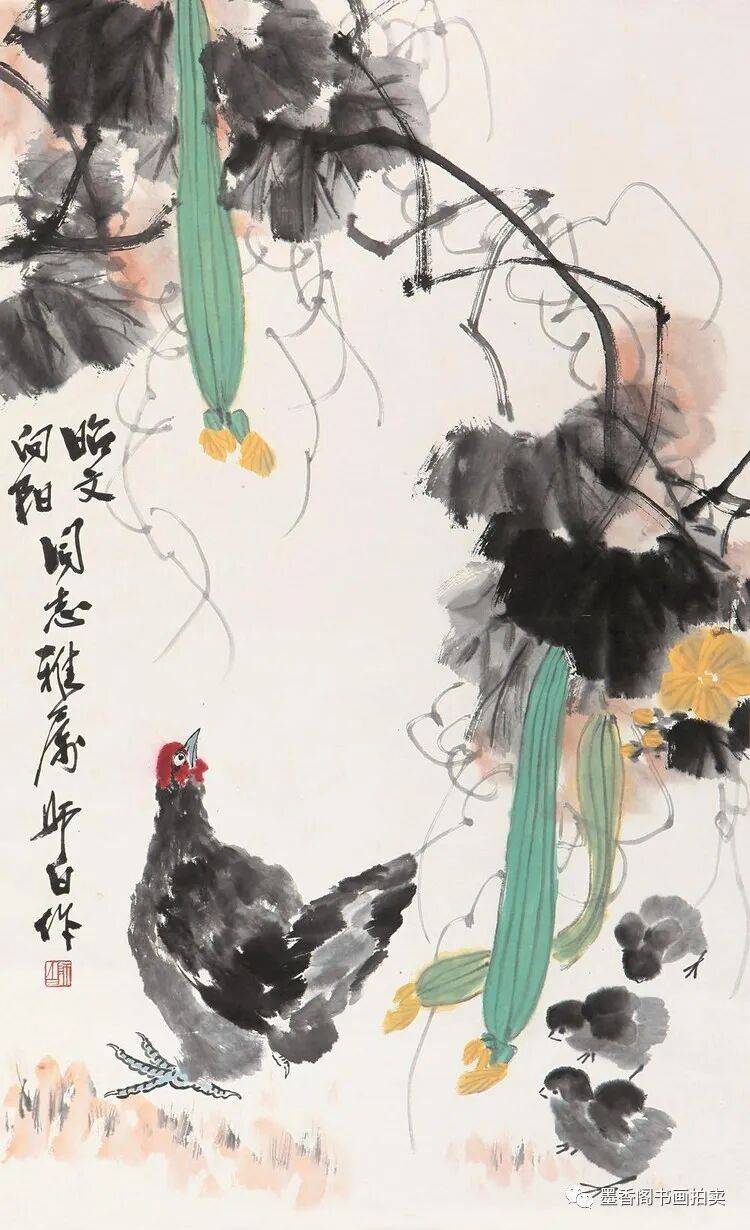 昭文
向阳
同志雅属 师白作
墨香阁书画拍卖